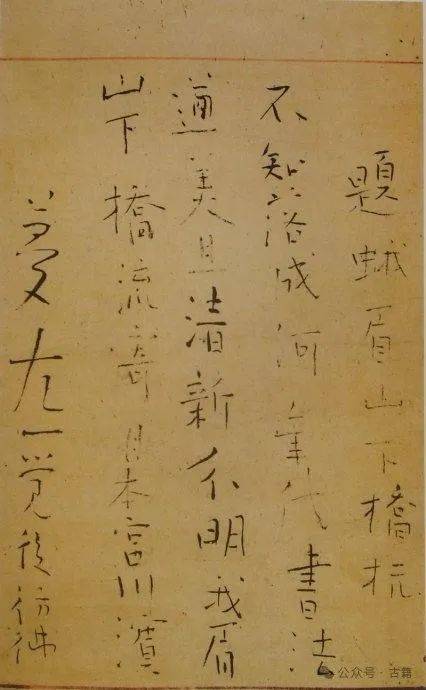 題蛾眉山下橋杭
不知落成何年代書法
遒美且清新分明我眉
山下橋流寄日本宮川濱
夢左一覚後彷彿
公众号·古籍